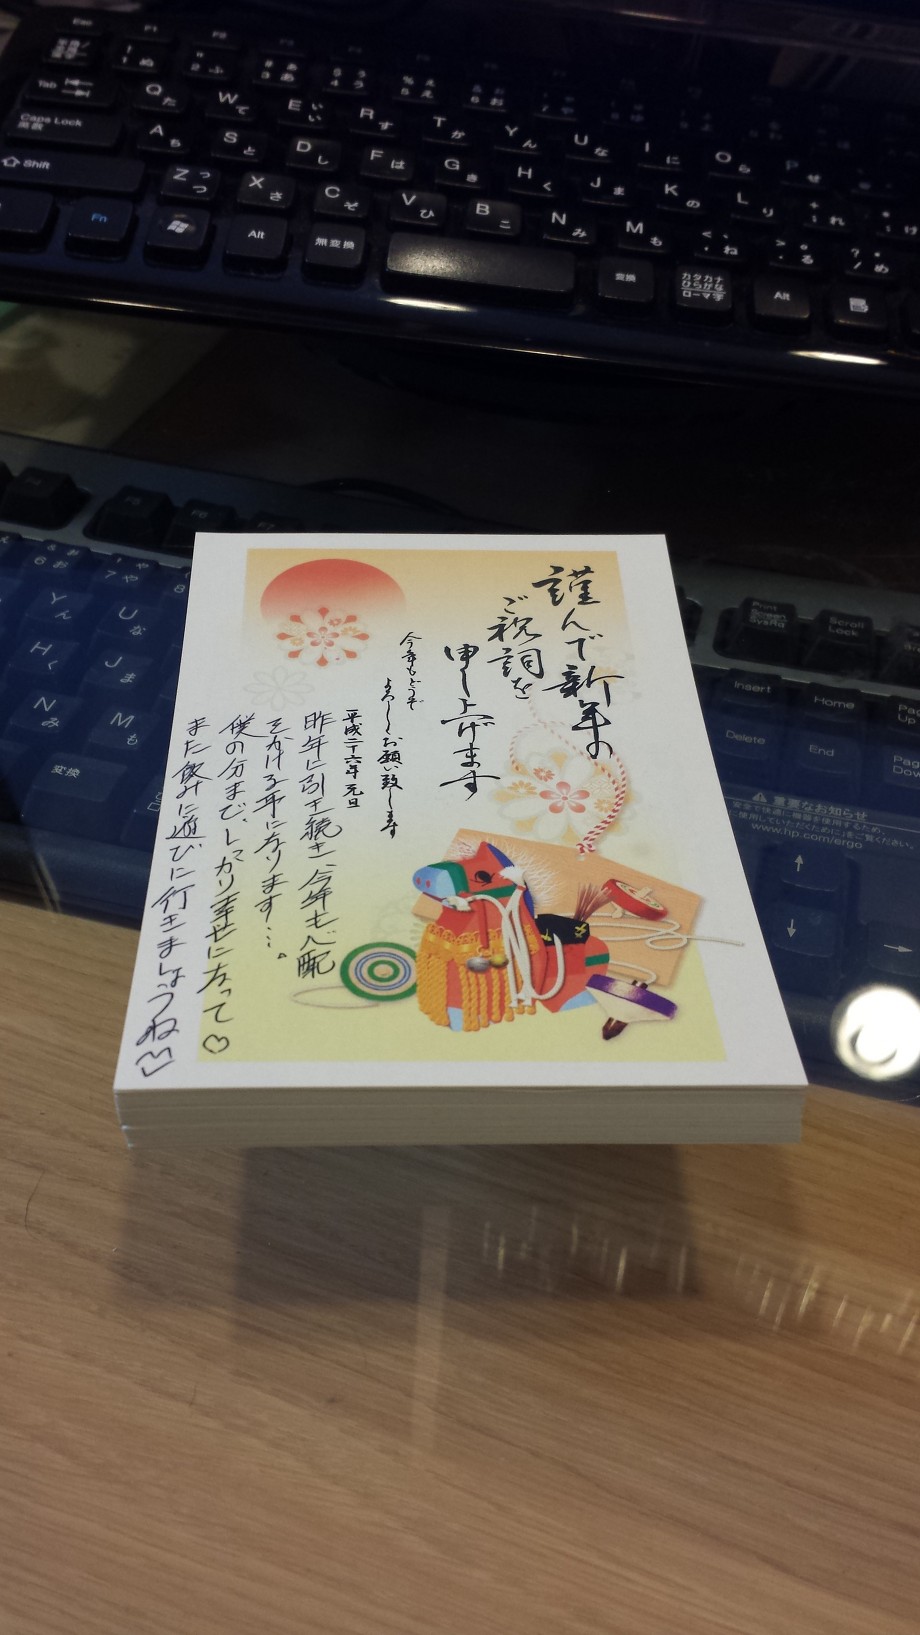 謹んで新年の
ご祝詞を
申し上げます
今年もどうぞ
よろしくお願い致します
平成二十六年 元旦
昨年に引き続き、今年も心配
をかける年になります…。
僕の分まで、しっかり幸せになって♡
また飲みに遊びに行きましょうね
Esc F1 F2
Tab Q た W て E い R す T か Y ん U な I に O ら P せ
Caps Lock 英数 A ち S と D し F は G き H く J ま K の L り
Shift Z つ X さ C そ V ひ B こ N み M も
Fn Alt 無変換 変換 カタカナ ひらがな ローマ字 Alt
F5 F6 F7
Y ん U な
H く J ま
N み M も
変換
Print Screen SysRq
Scroll Lock
Insert Home
Delete End
重要なお知らせ
安全で快適に機器を使用するため、
ご使用していただくために」をご覧ください。
www.hp.com/ergo